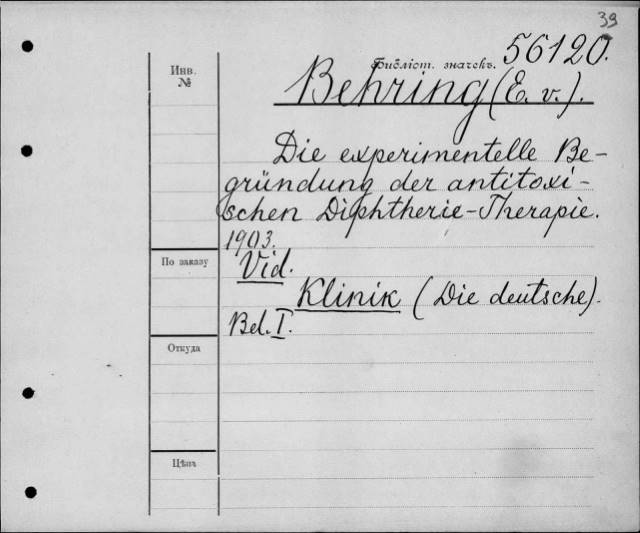 39
Библіот. значекъ. 56120.
Инв.
№
Behring (E. v.).
Die experimentelle Be-
gründung der antitoxi-
schen Diphtherie-Therapie.
1903.
По заказу
Vid.
Klinik (Die deutsche).
Bd. I.
Откуда
Цѣна